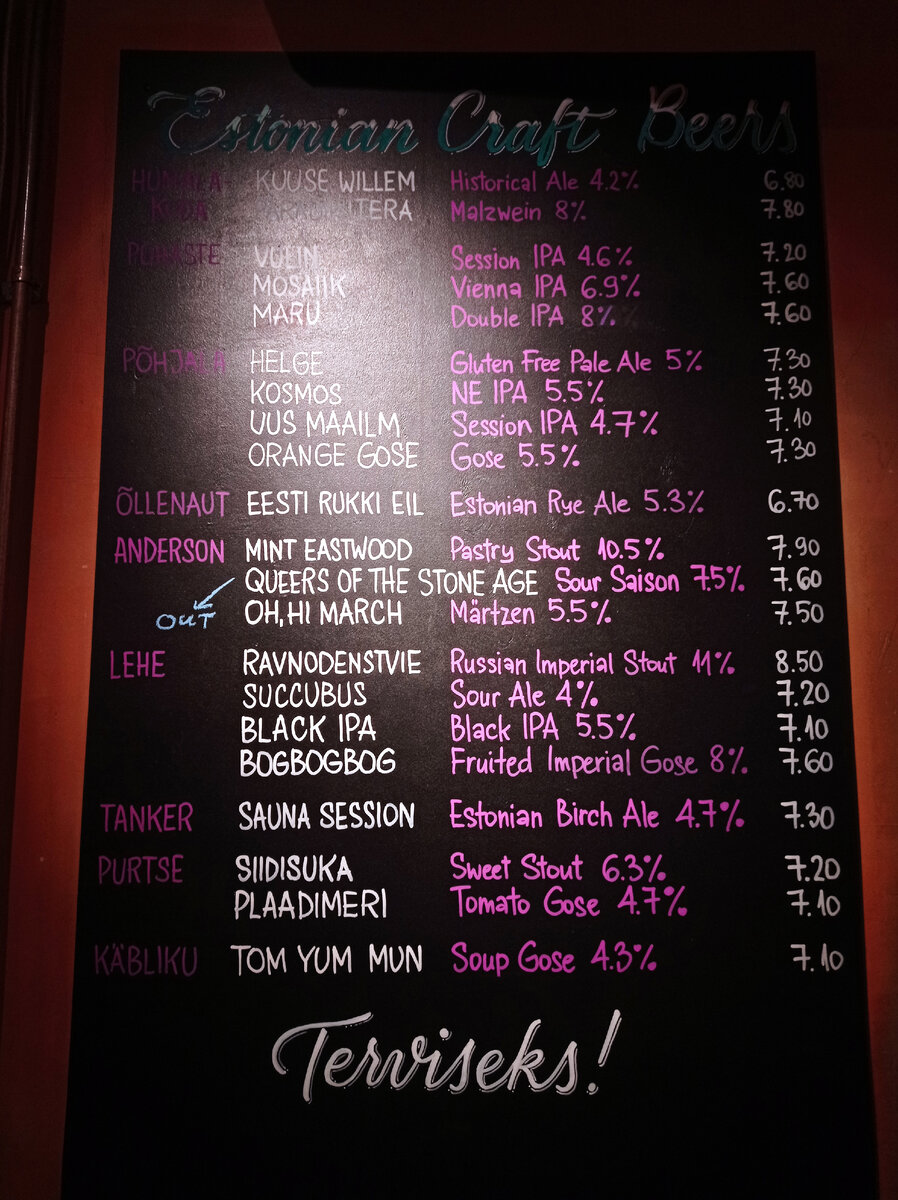 Estonian Craft Beers
KUUSE WILLEM Historical Ale 4.2% 6.80
Malzwein 8% 7.80
Session IPA 4.6% 7.20
MOSAIIK Vienna IPA 6.9% 7.60
MARU Double IPA 8% 7.60
PÕHJALA HELGE Gluten Free Pale Ale 5% 7.30
KOSMOS NE IPA 5.5% 7.30
UUS MAAILM Session IPA 4.7% 7.10
ORANGE GOSE Gose 5.5% 7.30
ÕLLENAUT EESTI RUKKI EIL Estonian Rye Ale 5.3% 6.70
ANDERSON MINT EASTWOOD Pastry Stout 10.5% 7.90
QUEERS OF THE STONE AGE Sour Saison 7.5% 7.60
OUT OH, HI MARCH Märtzen 5.5% 7.50
LEHE RAVNODENSTVIE Russian Imperial Stout 11% 8.50
SUCCUBUS Sour Ale 4% 7.20
BLACK IPA Black IPA 5.5% 7.10
BOGBOGBOG Fruited Imperial Gose 8% 7.60
TANKER SAUNA SESSION Estonian Birch Ale 4.7% 7.30
PURTSE SIIDISUKA Sweet Stout 6.3% 7.20
PLAADIMERI Tomato Gose 4.7% 7.10
KÄBLIKU TOM YUM MUN Soup Gose 4.3% 7.10
Terviseks!